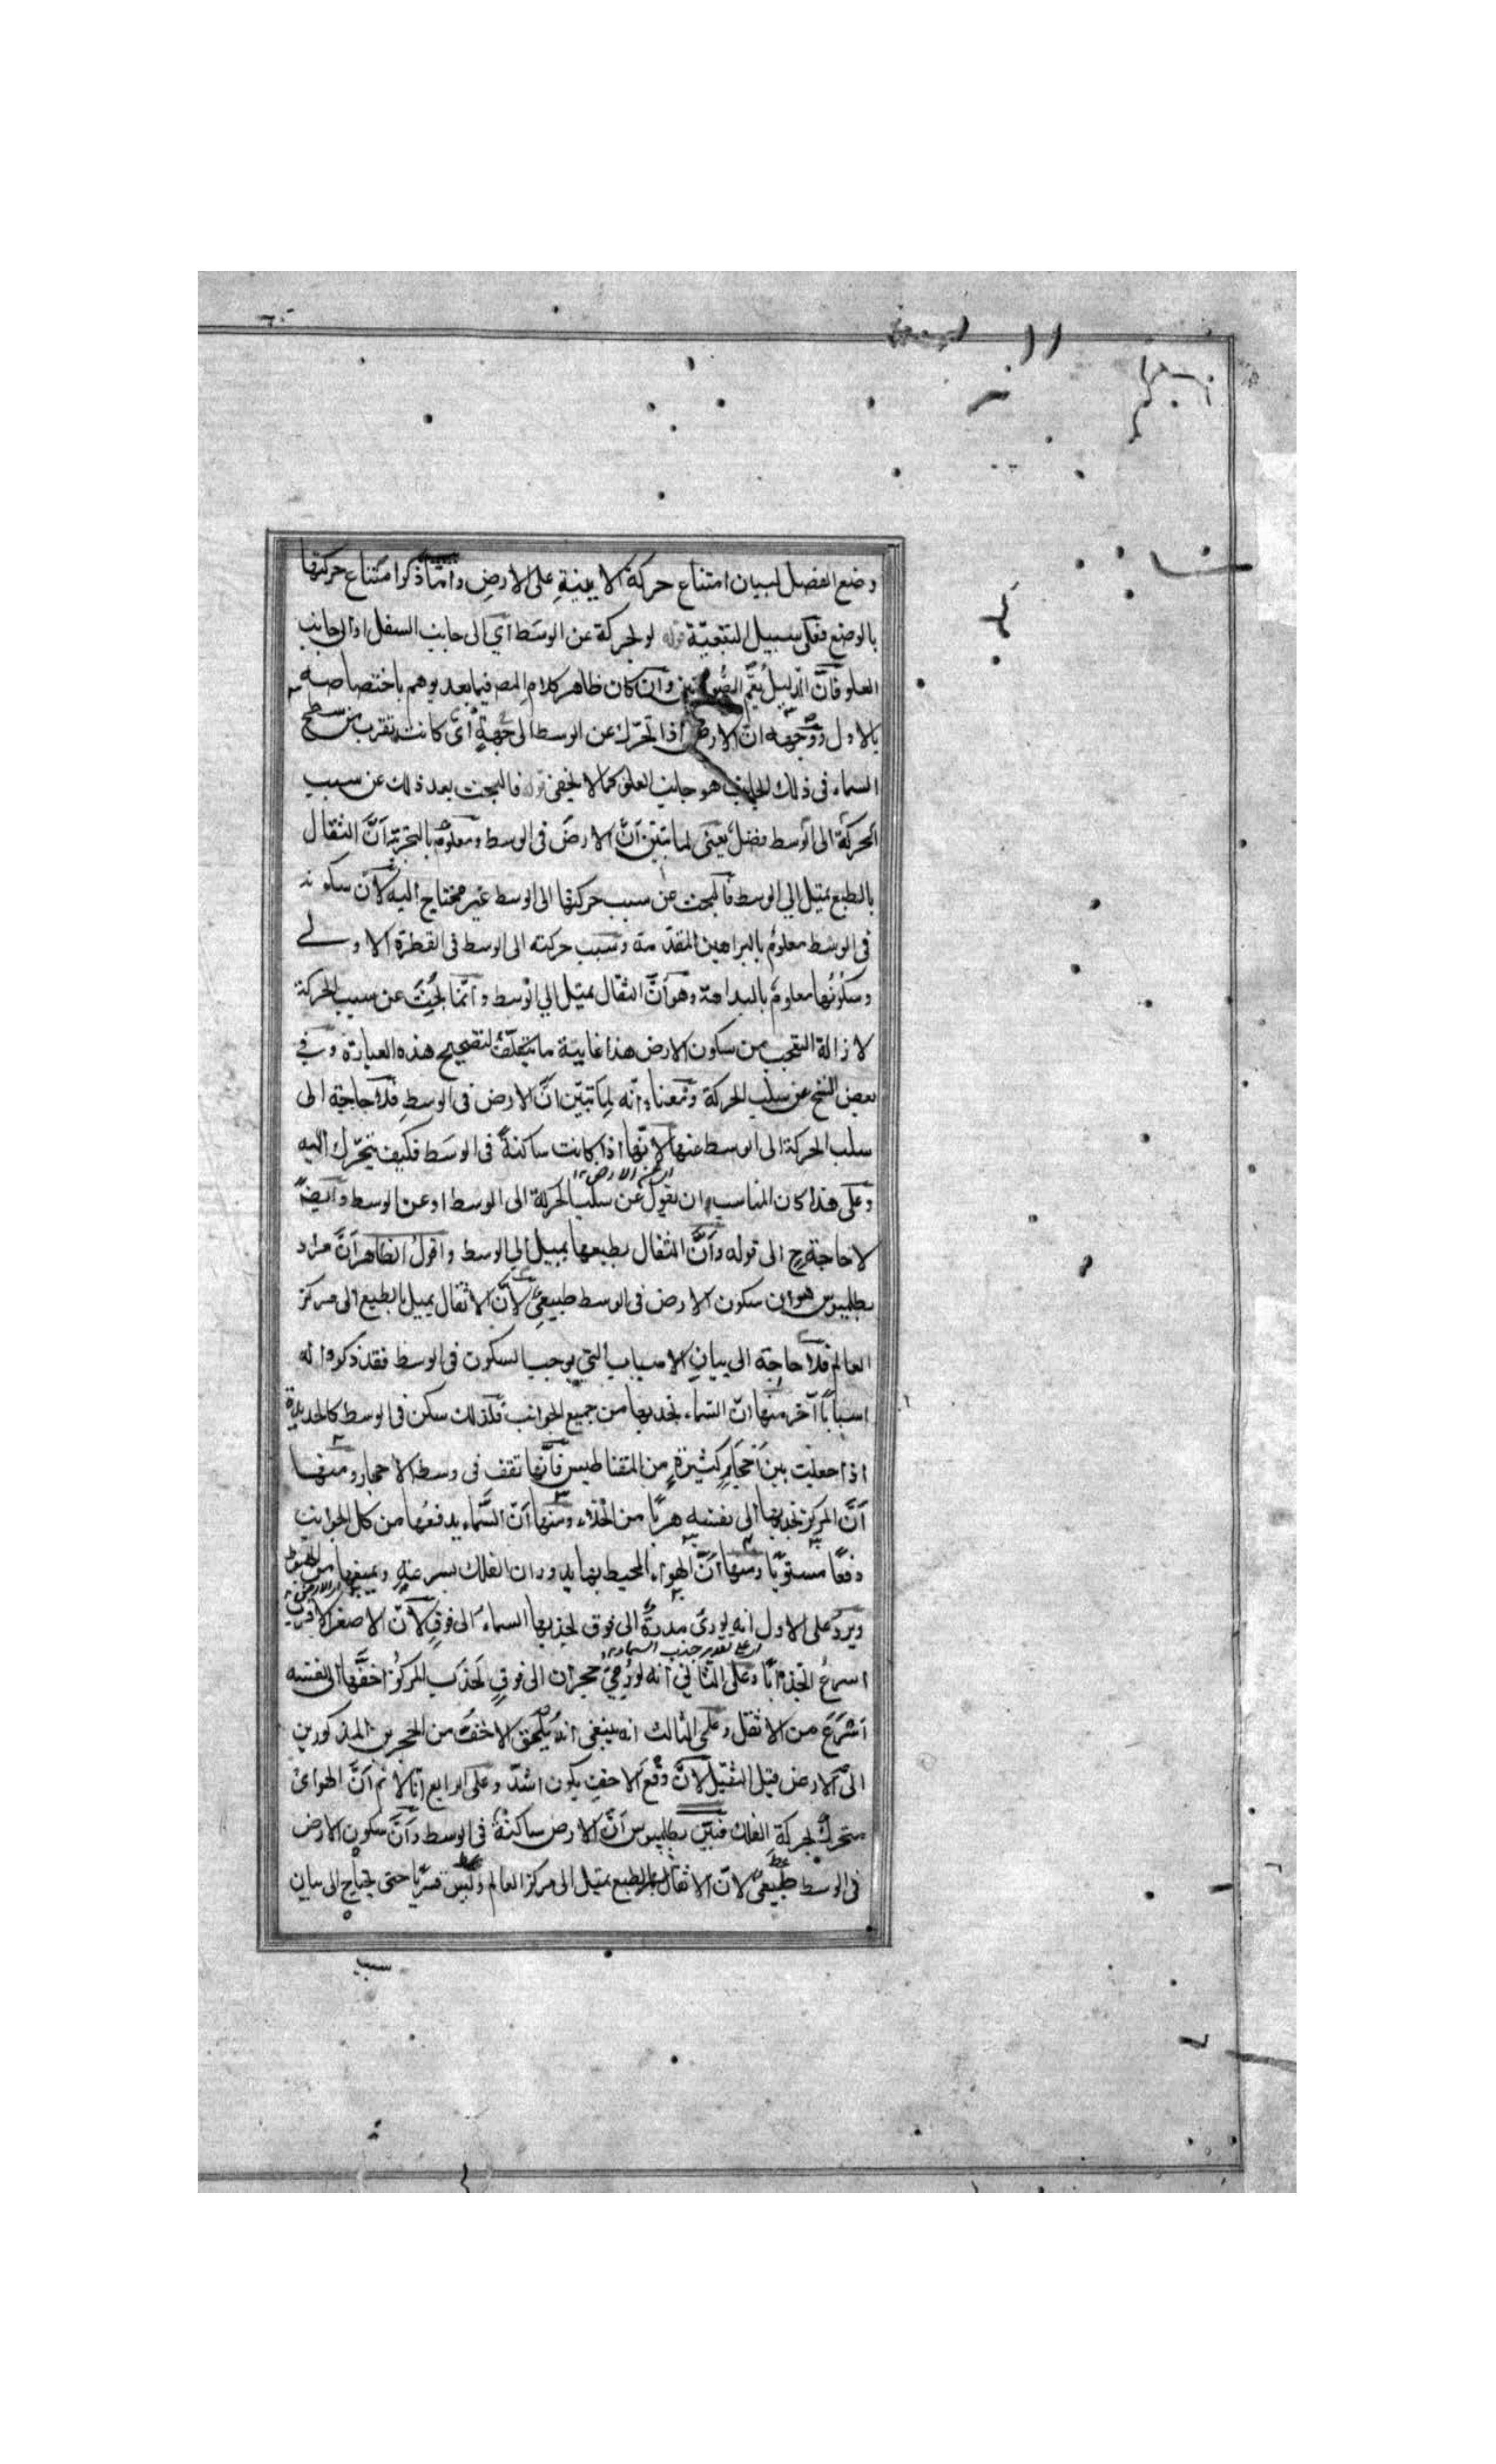 وضع الفصل لبيان امتناع حركة الاينية على الارض وانما ذكر امتناع حركتها
بالوضع فعلى سبيل التبعية قوله لو تحركة عن الوسط اي الى جانب السفل او الى جانب
العلو فان الدليل يعم الصورتين وان كان ظاهر كلام المص فيما بعد يوهم باختصاصه
بالاول ووجهه ان الارض اذا تحرك عن الوسط الى جهة اى كانت يقرب من سطح
السماء فى ذلك الجانب هو جانب العلو كما لا يخفى قوله فالبحث بعد ذلك عن سبب
الحركة الى الوسط فضل يعنى لما تبين ان الارض فى الوسط ومعلوم بالتجربة ان الثقال
بالطبع يميل الى الوسط فالبحث عن سبب حركتها الى الوسط غير محتاج اليه لان سكونه
فى الوسط معلوم بالبراهين المتقدمة وسبب حركته الى الوسط فى الفطرة الاولے
وسكونها معلوم بالبداهة وهو ان الثقال يميل الى الوسط وانما بحث عن سبب الحركة
لازالة التعجب من سكون الارض هذا غاية ما يتكلف لتصحيح هذه العبارة وفى
بعض النسخ عن سلب الحركة ومعناه انه لما تبين ان الارض فى الوسط فلا حاجة الى
سلب الحركة الى الوسط عنها لانها اذا كانت ساكنة فى الوسط فكيف يتحرك اليه
وعلى هذا كان المناسب ان يقول عن سلب الحركة الى الوسط او عن الوسط وايضا
اى عن الارض ١٢
لا حاجة ح الى قوله وان الثقال بطبعها يميل الى الوسط واقول الظاهر ان مراد
بطليموس هو ان سكون الارض فى الوسط طبيعى لان الاثقال يميل بالطبع الى مركز
العالم فلا حاجة الى بيان الاسباب التى يوجب السكون فى الوسط فقد ذكروا له
اسبابا آخر منها ان السماء تجذبها من جميع الجوانب فلذلك سكن فى الوسط كالحديدة
اذا جعلت بين احجار كثيرة من المقناطيس فانها تقف فى وسط الاحجار ومنها
ان المركز تجذبها الى نفسه هربا من الخلاء ومنها ان السماء يدفعها من كل الجوانب
دفعا مستويا ومنها ان الهواء المحيط بها يدور ان الفلك بسرعة ويمنعها من الهبوط
ويرد على الاول انه لو رمى مدرة الى فوق لجذبها السماء الى فوق لان الاصغر الاقرب
من الارض ١٢
اسرع انجذابا وعلى الثانى انه لو رمى حجران الى فوق لجذب المركز اخفهما الى نفسه
اى على تقدير جذب السماء ١٢
اسرع من الاثقل وعلى الثالث انه ينبغى انه يلحق الاخف من الحجرين المذكورين
الى الارض قبل الثقيل لان دفع الاخف يكون اشد وعلى الرابع انا لا نم ان الهواء
متحرك لحركة الفلك فتبين بطليموس ان الارض ساكنة فى الوسط وان سكون الارض
فى الوسط طبيعى لان الاثقال بالطبع يميل الى مركز العالم وليس قسريا حتى يحتاج الى بيان
سبب